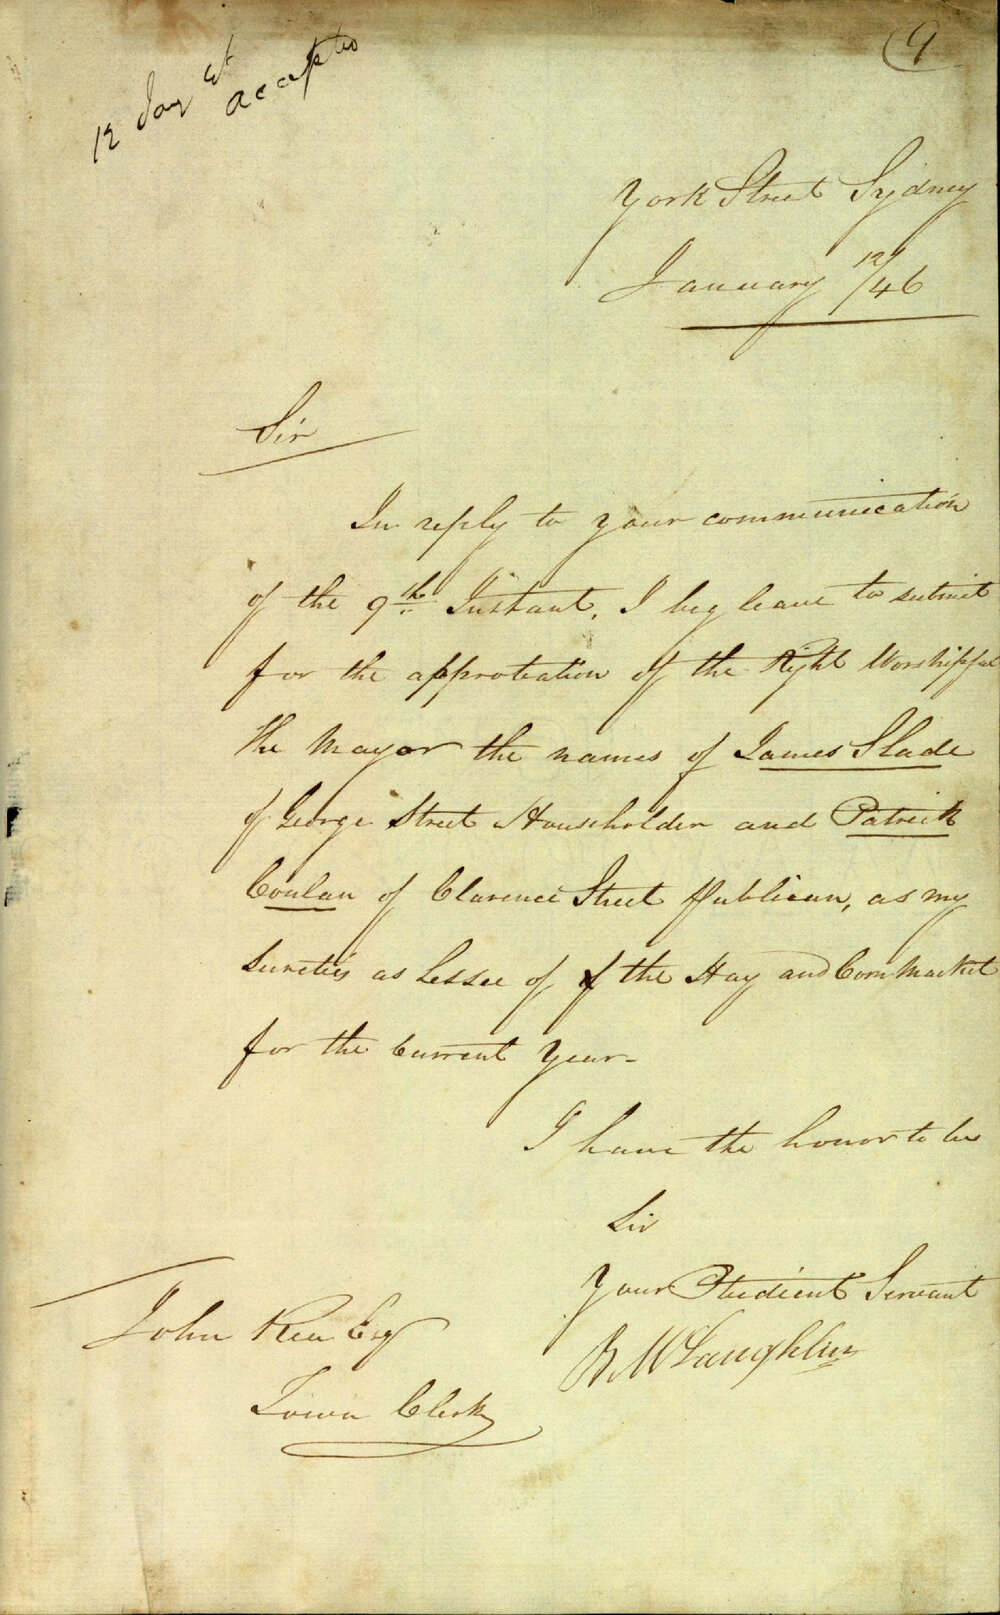 9
12 Jany
accepted
York Street Sydney
January 12/46
Sir
In reply to your communication
of the 9th Instant, I beg leave to submit
for the approbation of the Right Worshipful
the Mayor the names of James Slade
of George Street Householder and Patrick
Conlan of Clarence Street Publican, as my
sureties as Lessee of of the Hay and Corn Market
for the Current Year-
I have the honor to be
Sir
Your Obedient Servant
McLaughlin
John Rea Esq
Town Clerk